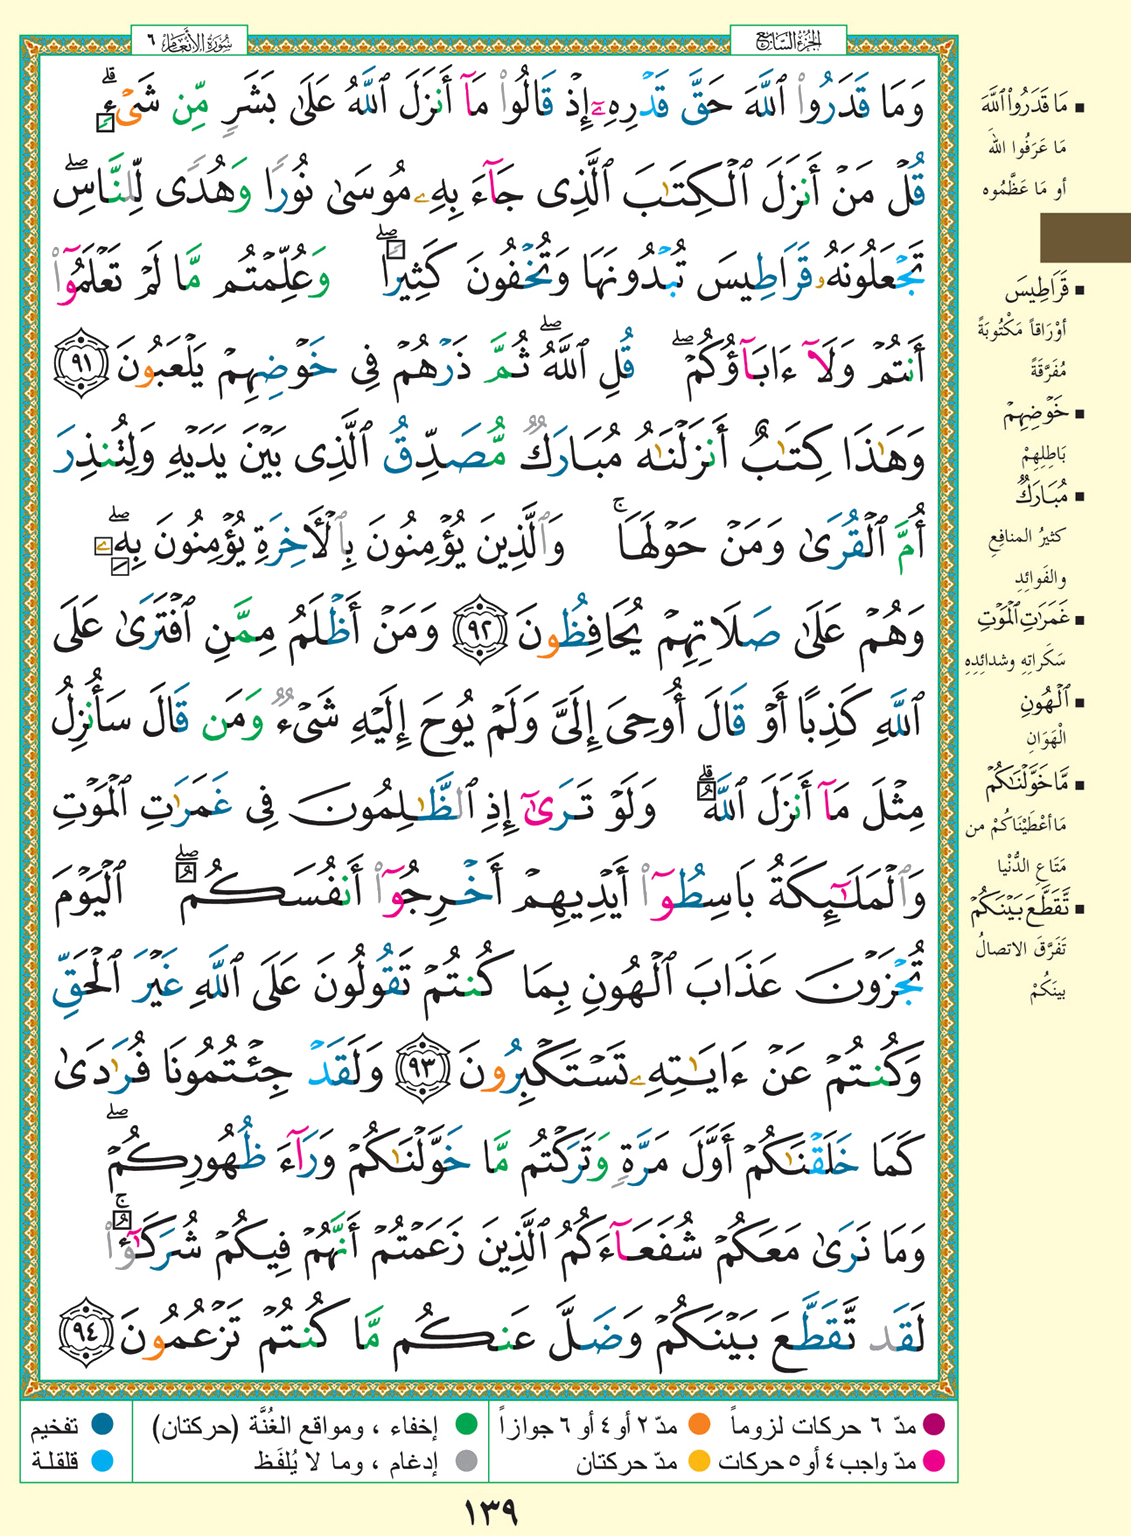 سُورَةُ الأَنْعَام ٦
الجُزْءُ السَّابِع
وَمَا قَدَرُواْ ٱللَّهَ حَقَّ قَدْرِهِۦٓ إِذْ قَالُواْ مَآ أَنزَلَ ٱللَّهُ عَلَىٰ بَشَرٍ مِّن شَىْءٍۗ
قُلْ مَنْ أَنزَلَ ٱلْكِتَٰبَ ٱلَّذِى جَآءَ بِهِۦ مُوسَىٰ نُورًا وَهُدًى لِّلنَّاسِۖ
تَجْعَلُونَهُۥ قَرَاطِيسَ تُبْدُونَهَا وَتُخْفُونَ كَثِيرًاۖ وَعُلِّمْتُم مَّا لَمْ تَعْلَمُوٓاْ
أَنتُمْ وَلَآ ءَابَآؤُكُمْۖ قُلِ ٱللَّهُۖ ثُمَّ ذَرْهُمْ فِى خَوْضِهِمْ يَلْعَبُونَ ٩١
وَهَٰذَا كِتَٰبٌ أَنزَلْنَٰهُ مُبَارَكٌ مُّصَدِّقُ ٱلَّذِى بَيْنَ يَدَيْهِ وَلِتُنذِرَ
أُمَّ ٱلْقُرَىٰ وَمَنْ حَوْلَهَاۚ وَٱلَّذِينَ يُؤْمِنُونَ بِٱلْأَخِرَةِ يُؤْمِنُونَ بِهِۦۖ
وَهُمْ عَلَىٰ صَلَاتِهِمْ يُحَافِظُونَ ٩٢ وَمَنْ أَظْلَمُ مِمَّنِ ٱفْتَرَىٰ عَلَى
ٱللَّهِ كَذِبًا أَوْ قَالَ أُوحِىَ إِلَىَّ وَلَمْ يُوحَ إِلَيْهِ شَىْءٌ وَمَن قَالَ سَأُنزِلُ
مِثْلَ مَآ أَنزَلَ ٱللَّهُۗ وَلَوْ تَرَىٰٓ إِذِ ٱلظَّٰلِمُونَ فِى غَمَرَٰتِ ٱلْمَوْتِ
وَٱلْمَلَٰٓئِكَةُ بَاسِطُوٓاْ أَيْدِيهِمْ أَخْرِجُوٓاْ أَنفُسَكُمُۖ ٱلْيَوْمَ
تُجْزَوْنَ عَذَابَ ٱلْهُونِ بِمَا كُنتُمْ تَقُولُونَ عَلَى ٱللَّهِ غَيْرَ ٱلْحَقِّ
وَكُنتُمْ عَنْ ءَايَٰتِهِۦ تَسْتَكْبِرُونَ ٩٣ وَلَقَدْ جِئْتُمُونَا فُرَٰدَىٰ
كَمَا خَلَقْنَٰكُمْ أَوَّلَ مَرَّةٍ وَتَرَكْتُم مَّا خَوَّلْنَٰكُمْ وَرَآءَ ظُهُورِكُمْۖ
وَمَا نَرَىٰ مَعَكُمْ شُفَعَآءَكُمُ ٱلَّذِينَ زَعَمْتُمْ أَنَّهُمْ فِيكُمْ شُرَكَٰٓؤُاْۚ
لَقَد تَّقَطَّعَ بَيْنَكُمْ وَضَلَّ عَنكُم مَّا كُنتُمْ تَزْعُمُونَ ٩٤
مَا قَدَرُواْ ٱللَّهَ
مَا عَرَفُوا اللهَ
أو مَا عَظَّمُوه
قَرَاطِيسَ
أوْرَاقاً مَكْتُوبَةً
مُفَرَّقَةً
خَوْضِهِمْ
بَاطِلِهِمْ
مُبَارَكٌ
كثيرُ المنافِعِ
والفَوائِدِ
غَمَرَاتِ ٱلْمَوْتِ
سَكَراتِهِ وشدائِدِهِ
ٱلْهُونِ
الْهَوَانِ
مَّا خَوَّلْنَٰكُمْ
مَا أعْطَيْنَاكُمْ من
مَتَاعِ الدُّنْيا
تَّقَطَّعَ بَيْنَكُمْ
تَفَرَّقَ الاتصالُ
بينَكُمْ
مدّ ٦ حركات لزوماً
مدّ ٢ أو ٤ أو ٦ جوازاً
إخفاء ، ومواقع الغُنَّة (حركتان)
تفخيم
مدّ واجب ٤ أو ٥ حركات
مدّ حركتان
إدغام ، وما لا يُلفَظ
قلقلة
١٣٩